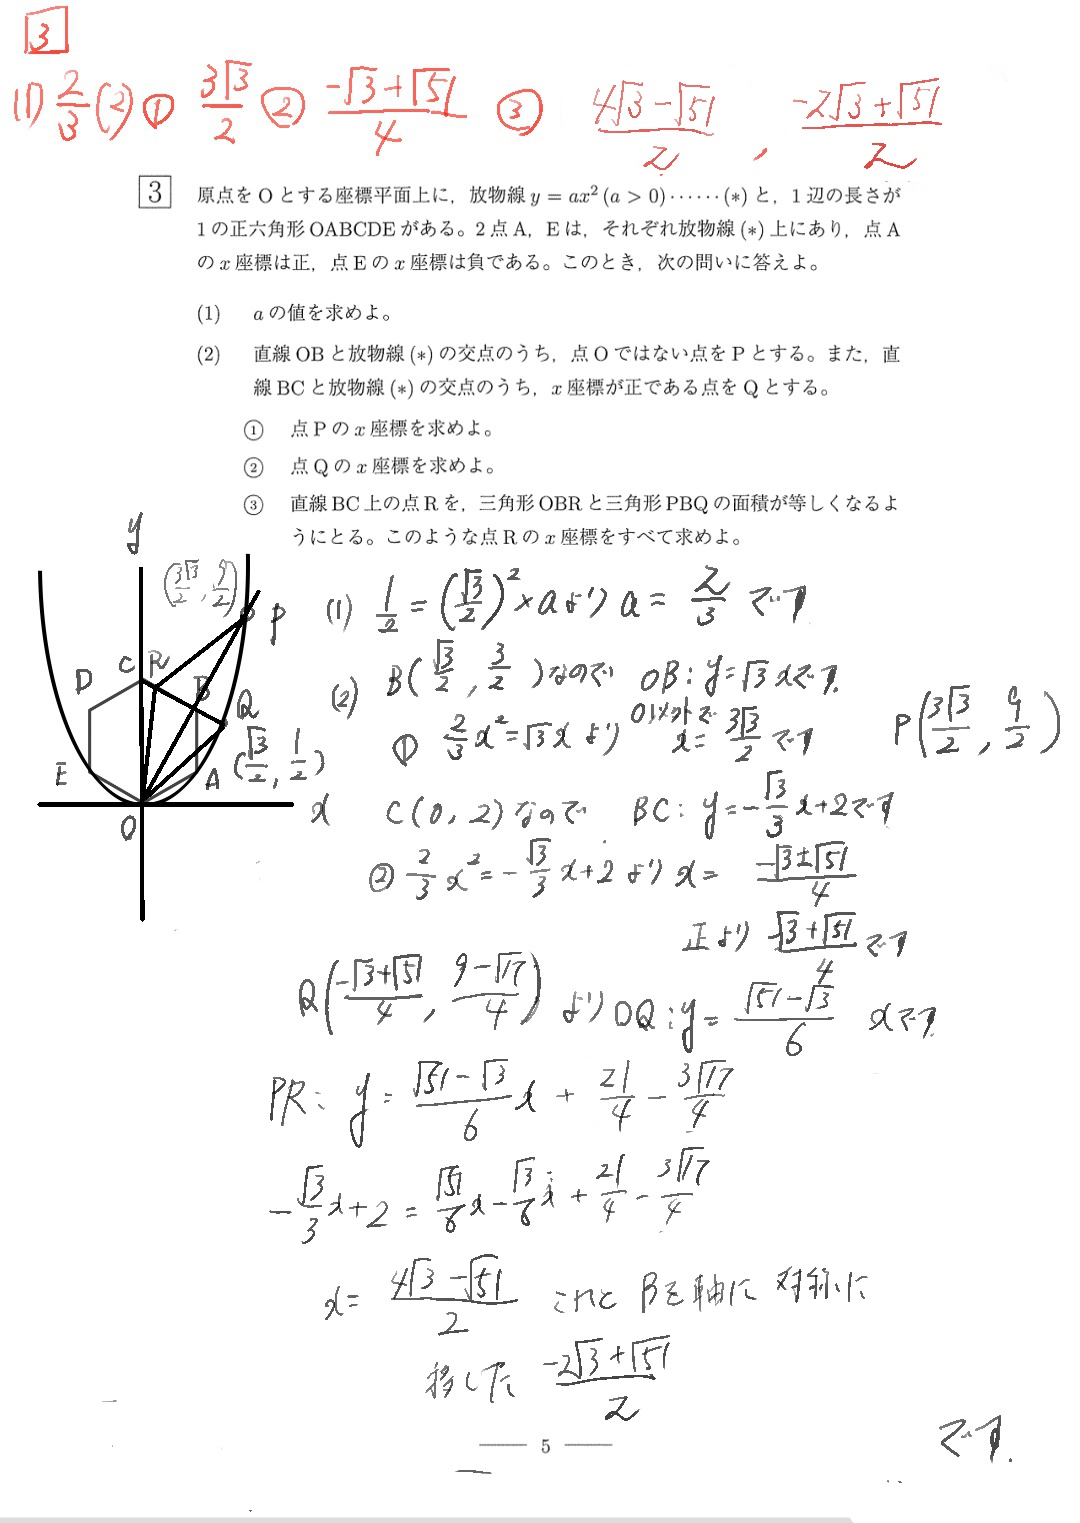 3
(1) 2/3 (2) ① 3√3/2 ② (-√3+√51)/4 ③ (4√3-√51)/2 , (-2√3+√51)/2
3 原点を O とする座標平面上に，放物線 y = ax² (a > 0)······(∗) と，1 辺の長さが
1 の正六角形 OABCDE がある。2 点 A，E は，それぞれ放物線 (∗) 上にあり，点 A
の x 座標は正，点 E の x 座標は負である。このとき，次の問いに答えよ。
(1) a の値を求めよ。
(2) 直線 OB と放物線 (∗) の交点のうち，点 O ではない点を P とする。また，直
線 BC と放物線 (∗) の交点のうち，x 座標が正である点を Q とする。
① 点 P の x 座標を求めよ。
② 点 Q の x 座標を求めよ。
③ 直線 BC 上の点 R を，三角形 OBR と三角形 PBQ の面積が等しくなるよ
うにとる。このような点 R の x 座標をすべて求めよ。
y
(3√3/2, 9/2)
P
C R
D
B
Q
E
A (√3/2, 1/2)
x
O
(1) 1/2 = (√3/2)² × a より a = 2/3 です
(2) B(√3/2, 3/2) なので OB: y = √3x です.
① 2/3 x² = √3x より O以外で x = 3√3/2 です P(3√3/2, 9/2)
C(0, 2) なので BC: y = -√3/3 x + 2 です
② 2/3 x² = -√3/3 x + 2 より x = (-√3±√51)/4
正より (-√3+√51)/4 です
Q((-√3+√51)/4, (9-√17)/4) より OQ: y = (√51-√3)/6 x です
PR: y = (√51-√3)/6 x + 21/4 - 3√17/4
-√3/3 x + 2 = √51/6 x - √3/6 x + 21/4 - 3√17/4
x = (4√3-√51)/2 これと Bを軸に 対称に
移した (-2√3+√51)/2
です.
5